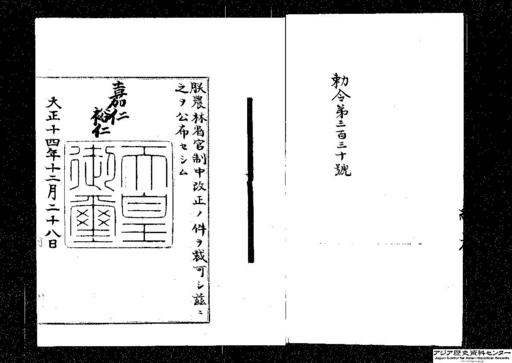 勅令第三百三十號
朕農林省官制中改正ノ件ヲ裁可シ茲ニ
之ヲ公布セシム
嘉仁
裕仁
天皇
御璽
大正十四年十二月二十八日
アジア歴史資料センター
Japan Center for Asian Historical Records